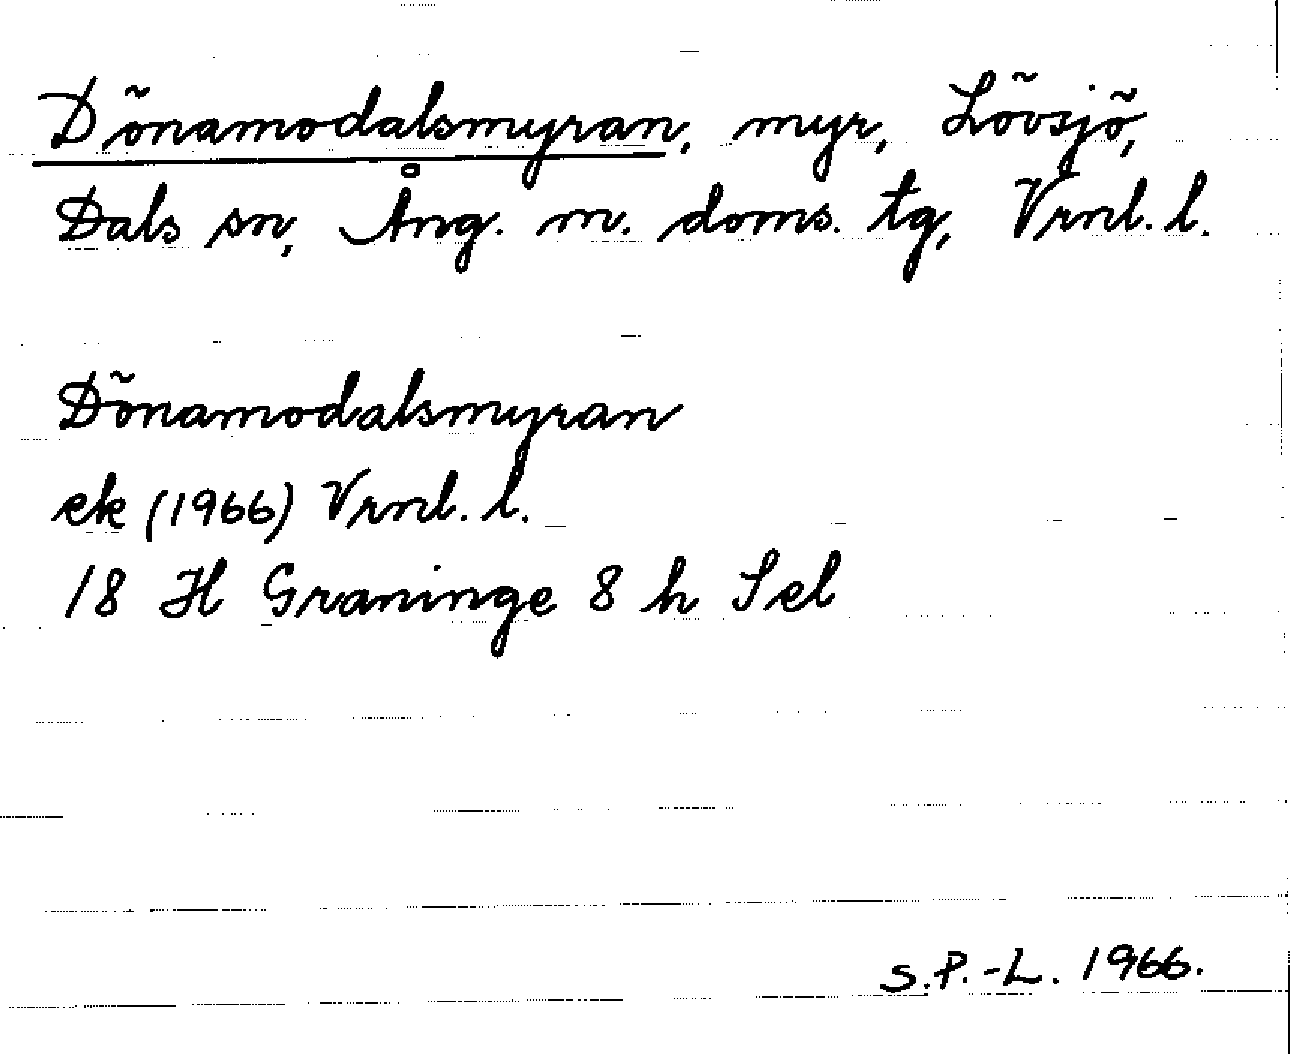 Dönamodalsmyran, myr, Lövsjö,
Dals sn, Ång. m. doms. tg, Vrnl. l.
Dönamodalsmyran
ek (1966) Vrnl. l.
18 H Graninge 8 h Sel
S.P.-L. 1966.